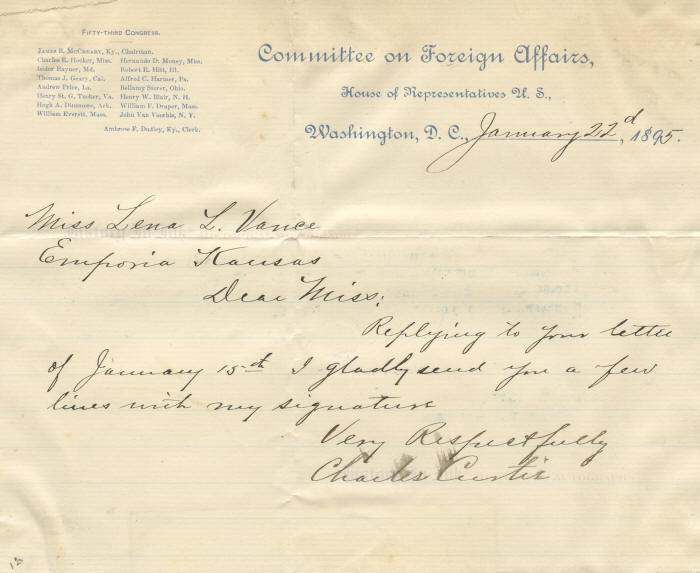 FIFTY-THIRD CONGRESS.
JAMES B. MCCREARY, Ky., Chairman.
Charles E. Hooker, Miss. Hernando D. Money, Miss.
Isidor Rayner, Md. Robert R. Hitt, Ill.
Thomas J. Geary, Cal. Alfred C. Harmer, Pa.
Andrew Price, La. Bellamy Storer, Ohio.
Henry St. G. Tucker, Va. Henry W. Blair, N. H.
Hugh A. Dinsmore, Ark. William F. Draper, Mass.
William Everett, Mass. John Van Voorhis, N. Y.
Ambrose F. Dudley, Ky., Clerk.
Committee on Foreign Affairs,
House of Representatives U. S.,
Washington, D. C., January 22d, 1895.
Miss Lena L. Vance
Emporia Kansas
Dear Miss:
Replying to your letter
of January 15th I gladly send you a few
lines with my signature
Very Respectfully
Charles Curtis